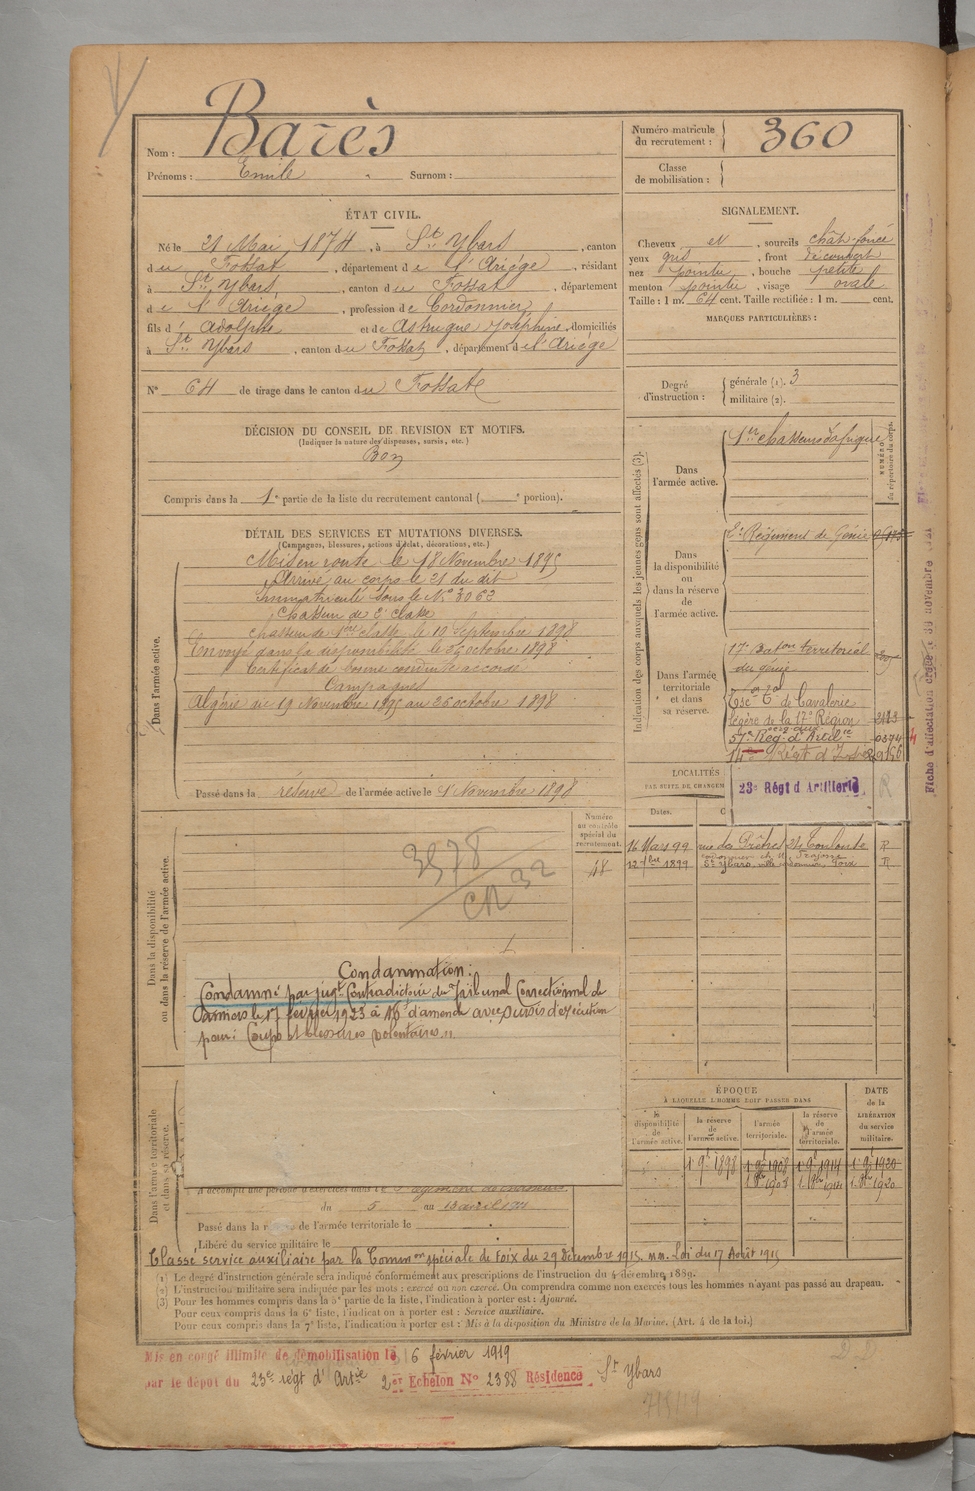 Nom : Barès
Prénoms : Emile Surnom :
Numéro matricule du recrutement : 360
Classe de mobilisation :
ÉTAT CIVIL.
Né le 21 Mai 1874, à St Ybars, canton
du Fossat, département de l'Ariège, résidant
à St Ybars, canton du Fossat, département
de l'Ariège, profession de Cordonnier
fils d' Adolphe et de Astruque Joséphine, domiciliés
à St Ybars, canton du Fossat, département de l'Ariège
N° 64 de tirage dans le canton du Fossat
SIGNALEMENT.
Cheveux et, sourcils chât. foncé
yeux gris, front découvert
nez pointu, bouche petite
menton pointu, visage ovale
Taille : 1 m. 64 cent. Taille rectifiée : 1 m. cent.
MARQUES PARTICULIÈRES :
Degré d'instruction : générale (1). 3
militaire (2).
DÉCISION DU CONSEIL DE REVISION ET MOTIFS.
(Indiquer la nature des dispenses, sursis, etc.)
Bon
Compris dans la 1e partie de la liste du recrutement cantonal ( e portion).
DÉTAIL DES SERVICES ET MUTATIONS DIVERSES.
(Campagnes, blessures, actions d'éclat, décorations, etc.)
Dans l'armée active.
Mis en route le 18 Novembre 1895
Arrivé au corps le 21 du dit
Immatriculé sous le N° 3063
Chasseur de 2e classe
Chasseur de 1ère classe le 19 Septembre 1898
Envoyé dans la disponibilité le 26 octobre 1898
Certificat de bonne conduite accordé
Campagnes
Algérie du 19 Novembre 1895 au 26 octobre 1898
Passé dans la réserve de l'armée active le 1 Novembre 1898
Indication des corps auxquels les jeunes gens sont affectés (3).
NUMÉRO au répertoire du corps.
Dans l'armée active.
1er chasseurs d'afrique
Dans la disponibilité ou dans la réserve de l'armée active.
2e Régiment de Génie
Dans l'armée territoriale et dans sa réserve.
17e Baton territorial
du génie
de Cavalerie
légère de la 17e Région 2123
57e Rég. d'Artilie 0374
14e Régt d'Inf
23e Régt d'Artillerie
R
Fiche d'affectation créée le 30 novembre 1921
LOCALITÉS
PAR SUITE DE CHANGEM
Dates.
16 Mars 99 rue des Prêtres 24 Toulouse R
12 7bre 1899 St Ybars, Foix R
Dans la disponibilité ou dans la réserve de l'armée active.
Numéro au contrôle spécial du recrutement.
48
3978
CR 32
Condamnation :
Condamné par jugt Contradictoire du Tribunal Correctionnel de
Pamiers le 17 février 1923 à 16f d'amende avec sursis d'exécution
pour : Coups et blessures volontaires.
ÉPOQUE
À LAQUELLE L'HOMME DOIT PASSER DANS
la disponibilité de l'armée active.
la réserve de l'armée active.
l'armée territoriale.
la réserve de l'armée territoriale.
DATE de la LIBÉRATION du service militaire.
1 9e 1898 1 9e 1908 1 9e 1914 1 9e 1920
Dans l'armée territoriale et dans sa réserve.
A accompli une période d'exercices dans le
du 5 au 13 avril 1911
Passé dans la réserve de l'armée territoriale le
Libéré du service militaire le
Classé service auxiliaire par la Common spéciale de Foix du 29 décembre 1915. Loi du 17 Août 1915
(1) Le degré d'instruction générale sera indiqué conformément aux prescriptions de l'instruction du 4 décembre 1889.
(2) L'instruction militaire sera indiquée par les mots : exercé ou non exercé. On comprendra comme non exercés tous les hommes n'ayant pas passé au drapeau.
(3) Pour les hommes compris dans la 5e partie de la liste, l'indication à porter est : Ajourné.
Pour ceux compris dans la 6e liste, l'indication à porter est : Service auxiliaire.
Pour ceux compris dans la 7e liste, l'indication à porter est : Mis à la disposition du Ministre de la Marine. (Art. 4 de la loi.)
Mis en congé illimité de démobilisation le 6 février 1919
par le dépôt du 23e régt d'Artie 2er Echelon N° 2388 Résidence St Ybars